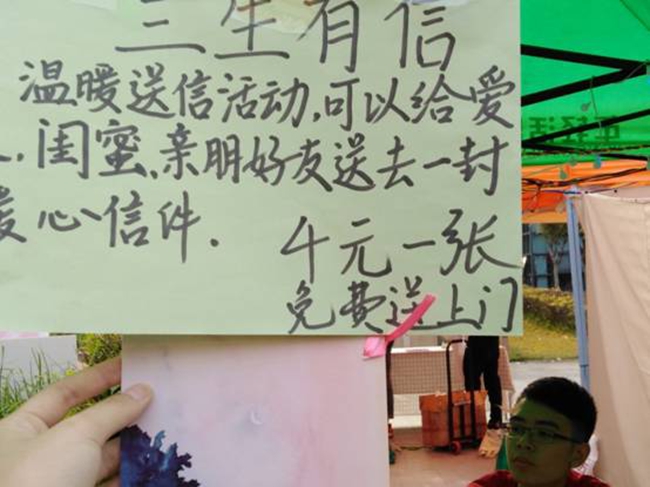 三生有信
温暖送信活动,可以给爱
闺蜜、亲朋好友送去一封
暖心信件.
4元一张
免费送上门